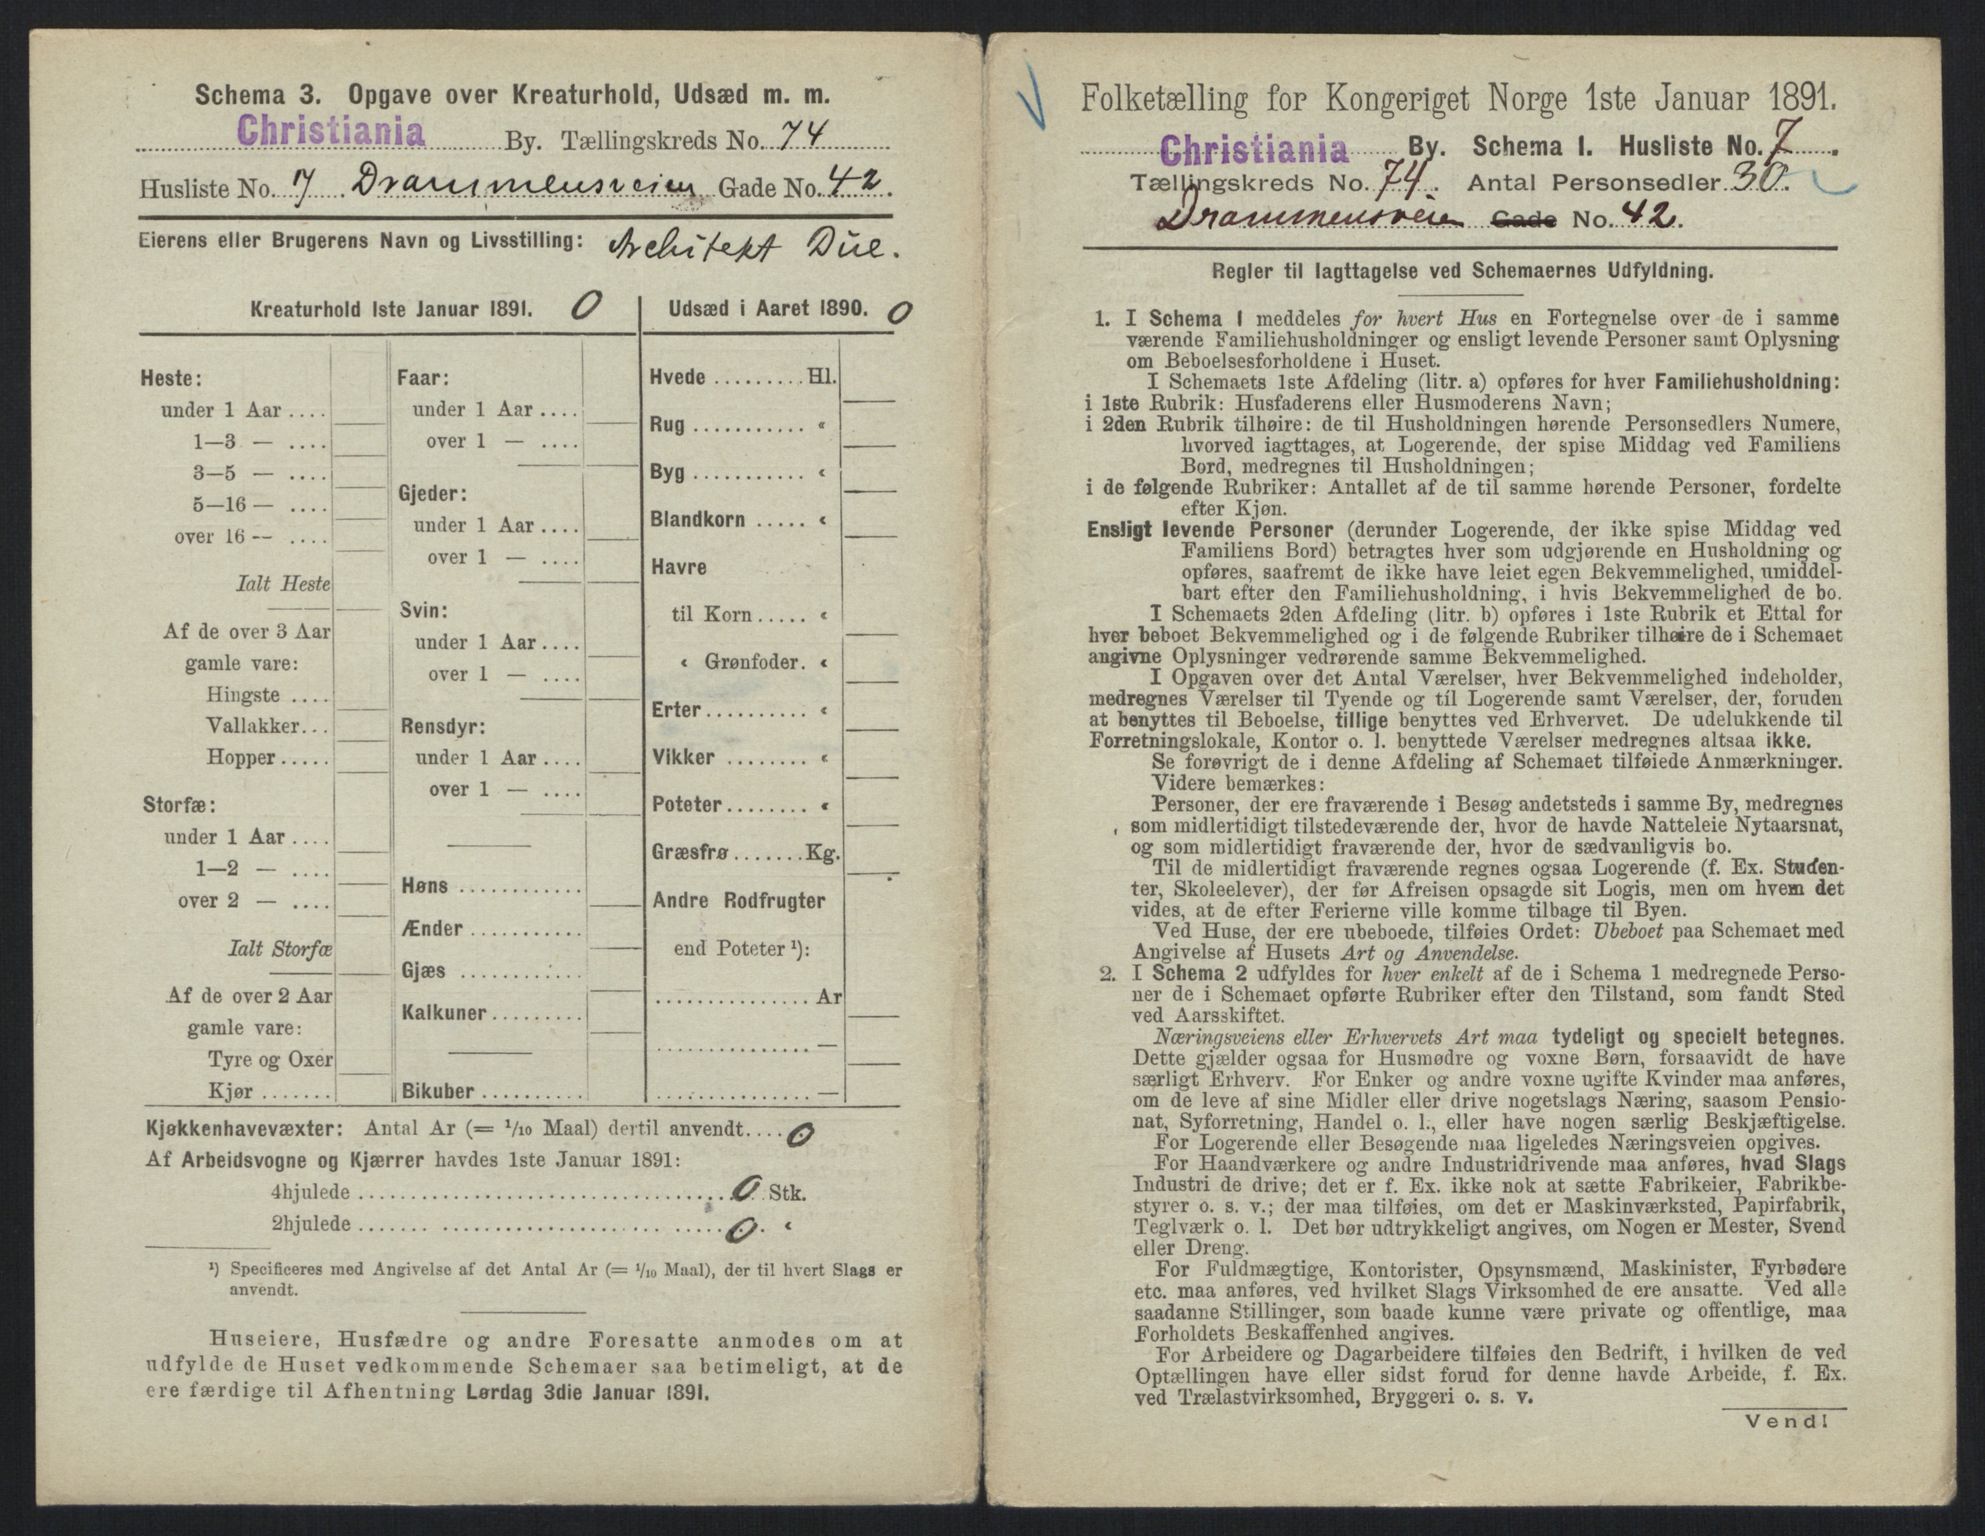 Schema 3. Opgave over Kreaturhold, Udsæd m. m.
Christiania By. Tællingskreds No. 74
Husliste No. 7 Drammensveien Gade No. 42.
Eierens eller Brugerens Navn og Livsstilling: Architekt Due.
Kreaturhold 1ste Januar 1891. 0
Heste:
under 1 Aar ....
1—3 — ....
3—5 — ....
5—16 — ....
over 16 — ....
Ialt Heste
Af de over 3 Aar
gamle vare:
Hingste ....
Vallakker...
Hopper.....
Storfæ:
under 1 Aar ....
1—2 — ....
over 2 — ....
Ialt Storfæ
Af de over 2 Aar
gamle vare:
Tyre og Oxer
Kjør .......
Faar:
under 1 Aar ....
over 1 — ....
Gjeder:
under 1 Aar ....
over 1 — ....
Svin:
under 1 Aar ....
over 1 — ....
Rensdyr:
under 1 Aar ....
over 1 — ....
Høns ............
Ænder ...........
Gjæs ............
Kalkuner.........
Bikuber ..........
Udsæd i Aaret 1890. 0
Hvede ......... Hl.
Rug ........... «
Byg ........... «
Blandkorn ..... «
Havre
til Korn ..... «
« Grønfoder. «
Erter.......... «
Vikker ........ «
Poteter........ «
Græsfrø....... Kg.
Andre Rodfrugter
end Poteter ¹):
............... Ar
............... —
............... —
Kjøkkenhavevæxter: Antal Ar (= 1/10 Maal) dertil anvendt.... 0
Af Arbeidsvogne og Kjærrer havdes 1ste Januar 1891:
4hjulede .................................... 0 Stk.
2hjulede .................................... 0 «
¹) Specificeres med Angivelse af det Antal Ar (= 1/10 Maal), der til hvert Slags er
anvendt.
Huseiere, Husfædre og andre Foresatte anmodes om at
udfylde de Huset vedkommende Schemaer saa betimeligt, at de
ere færdige til Afhentning Lørdag 3die Januar 1891.
Folketælling for Kongeriget Norge 1ste Januar 1891.
Christiania By. Schema 1. Husliste No. 7.
Tællingskreds No. 74. Antal Personsedler 30.
Drammensveien Gade No. 42.
Regler til Iagttagelse ved Schemaernes Udfyldning.
1. I Schema 1 meddeles for hvert Hus en Fortegnelse over de i samme
værende Familiehusholdninger og ensligt levende Personer samt Oplysning
om Beboelsesforholdene i Huset.
I Schemaets 1ste Afdeling (litr. a) opføres for hver Familiehusholdning:
i 1ste Rubrik: Husfaderens eller Husmoderens Navn;
i 2den Rubrik tilhøire: de til Husholdningen hørende Personsedlers Numere,
hvorved iagttages, at Logerende, der spise Middag ved Familiens
Bord, medregnes til Husholdningen;
i de følgende Rubriker: Antallet af de til samme hørende Personer, fordelte
efter Kjøn.
Ensligt levende Personer (derunder Logerende, der ikke spise Middag ved
Familiens Bord) betragtes hver som udgjørende en Husholdning og
opføres, saafremt de ikke have leiet egen Bekvemmelighed, umiddel-
bart efter den Familiehusholdning, i hvis Bekvemmelighed de bo.
I Schemaets 2den Afdeling (litr. b) opføres i 1ste Rubrik et Ettal for
hver beboet Bekvemmelighed og i de følgende Rubriker tilhøire de i Schemaet
angivne Oplysninger vedrørende samme Bekvemmelighed.
I Opgaven over det Antal Værelser, hver Bekvemmelighed indeholder,
medregnes Værelser til Tyende og til Logerende samt Værelser, der, foruden
at benyttes til Beboelse, tillige benyttes ved Erhvervet. De udelukkende til
Forretningslokale, Kontor o. l. benyttede Værelser medregnes altsaa ikke.
Se forøvrigt de i denne Afdeling af Schemaet tilføiede Anmærkninger.
Videre bemærkes:
Personer, der ere fraværende i Besøg andetsteds i samme By, medregnes
som midlertidigt tilstedeværende der, hvor de havde Natteleie Nytaarsnat,
og som midlertidigt fraværende der, hvor de sædvanligvis bo.
Til de midlertidigt fraværende regnes ogsaa Logerende (f. Ex. Studen-
ter, Skoleelever), der før Afreisen opsagde sit Logis, men om hvem det
vides, at de efter Ferierne ville komme tilbage til Byen.
Ved Huse, der ere ubeboede, tilføies Ordet: Ubeboet paa Schemaet med
Angivelse af Husets Art og Anvendelse.
2. I Schema 2 udfyldes for hver enkelt af de i Schema 1 medregnede Perso-
ner de i Schemaet opførte Rubriker efter den Tilstand, som fandt Sted
ved Aarsskiftet.
Næringsveiens eller Erhvervets Art maa tydeligt og specielt betegnes.
Dette gjælder ogsaa for Husmødre og voxne Børn, forsaavidt de have
særligt Erhverv. For Enker og andre voxne ugifte Kvinder maa anføres,
om de leve af sine Midler eller drive nogetslags Næring, saasom Pensio-
nat, Syforretning, Handel o. l., eller have nogen særlig Beskjæftigelse.
For Logerende eller Besøgende maa ligeledes Næringsveien opgives.
For Haandværkere og andre Industridrivende maa anføres, hvad Slags
Industri de drive; det er f. Ex. ikke nok at sætte Fabrikeier, Fabrikbe-
styrer o. s. v.; der maa tilføies, om det er Maskinværksted, Papirfabrik,
Teglværk o. l. Det bør udtrykkeligt angives, om Nogen er Mester, Svend
eller Dreng.
For Fuldmægtige, Kontorister, Opsynsmænd, Maskinister, Fyrbødere
etc. maa anføres, ved hvilket Slags Virksomhed de ere ansatte. Ved alle
saadanne Stillinger, som baade kunne være private og offentlige, maa
Forholdets Beskaffenhed angives.
For Arbeidere og Dagarbeidere tilføies den Bedrift, i hvilken de ved
Optællingen have eller sidst forud for denne havde Arbeide, f. Ex.
ved Trælastvirksomhed, Bryggeri o. s. v.
Vend!